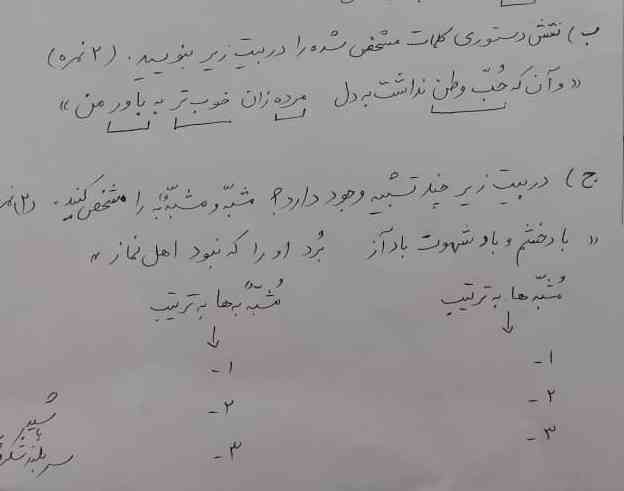 ب) نقش دستوری کلمات مشخص شده را در بیت زیر بنویسید. (۲ نمره)
«وآن که حُبّ وطن نداشت به دل مرده زان خوب تر به باور من»
ج) در بیت زیر چند تشبیه وجود دارد؟ مشبّه و مشبّهٌ‌به را مشخص کنید. (۲ نمر
«باد خشم و باد شهوت باد آز بُرد او را که نبود اهل نماز»
مُشبّه ها به ترتیب مُشبّهٌ به ها به ترتیب
↓ ↓
۱- ۱-
۲- ۲-
۳- ۳-
سربلند